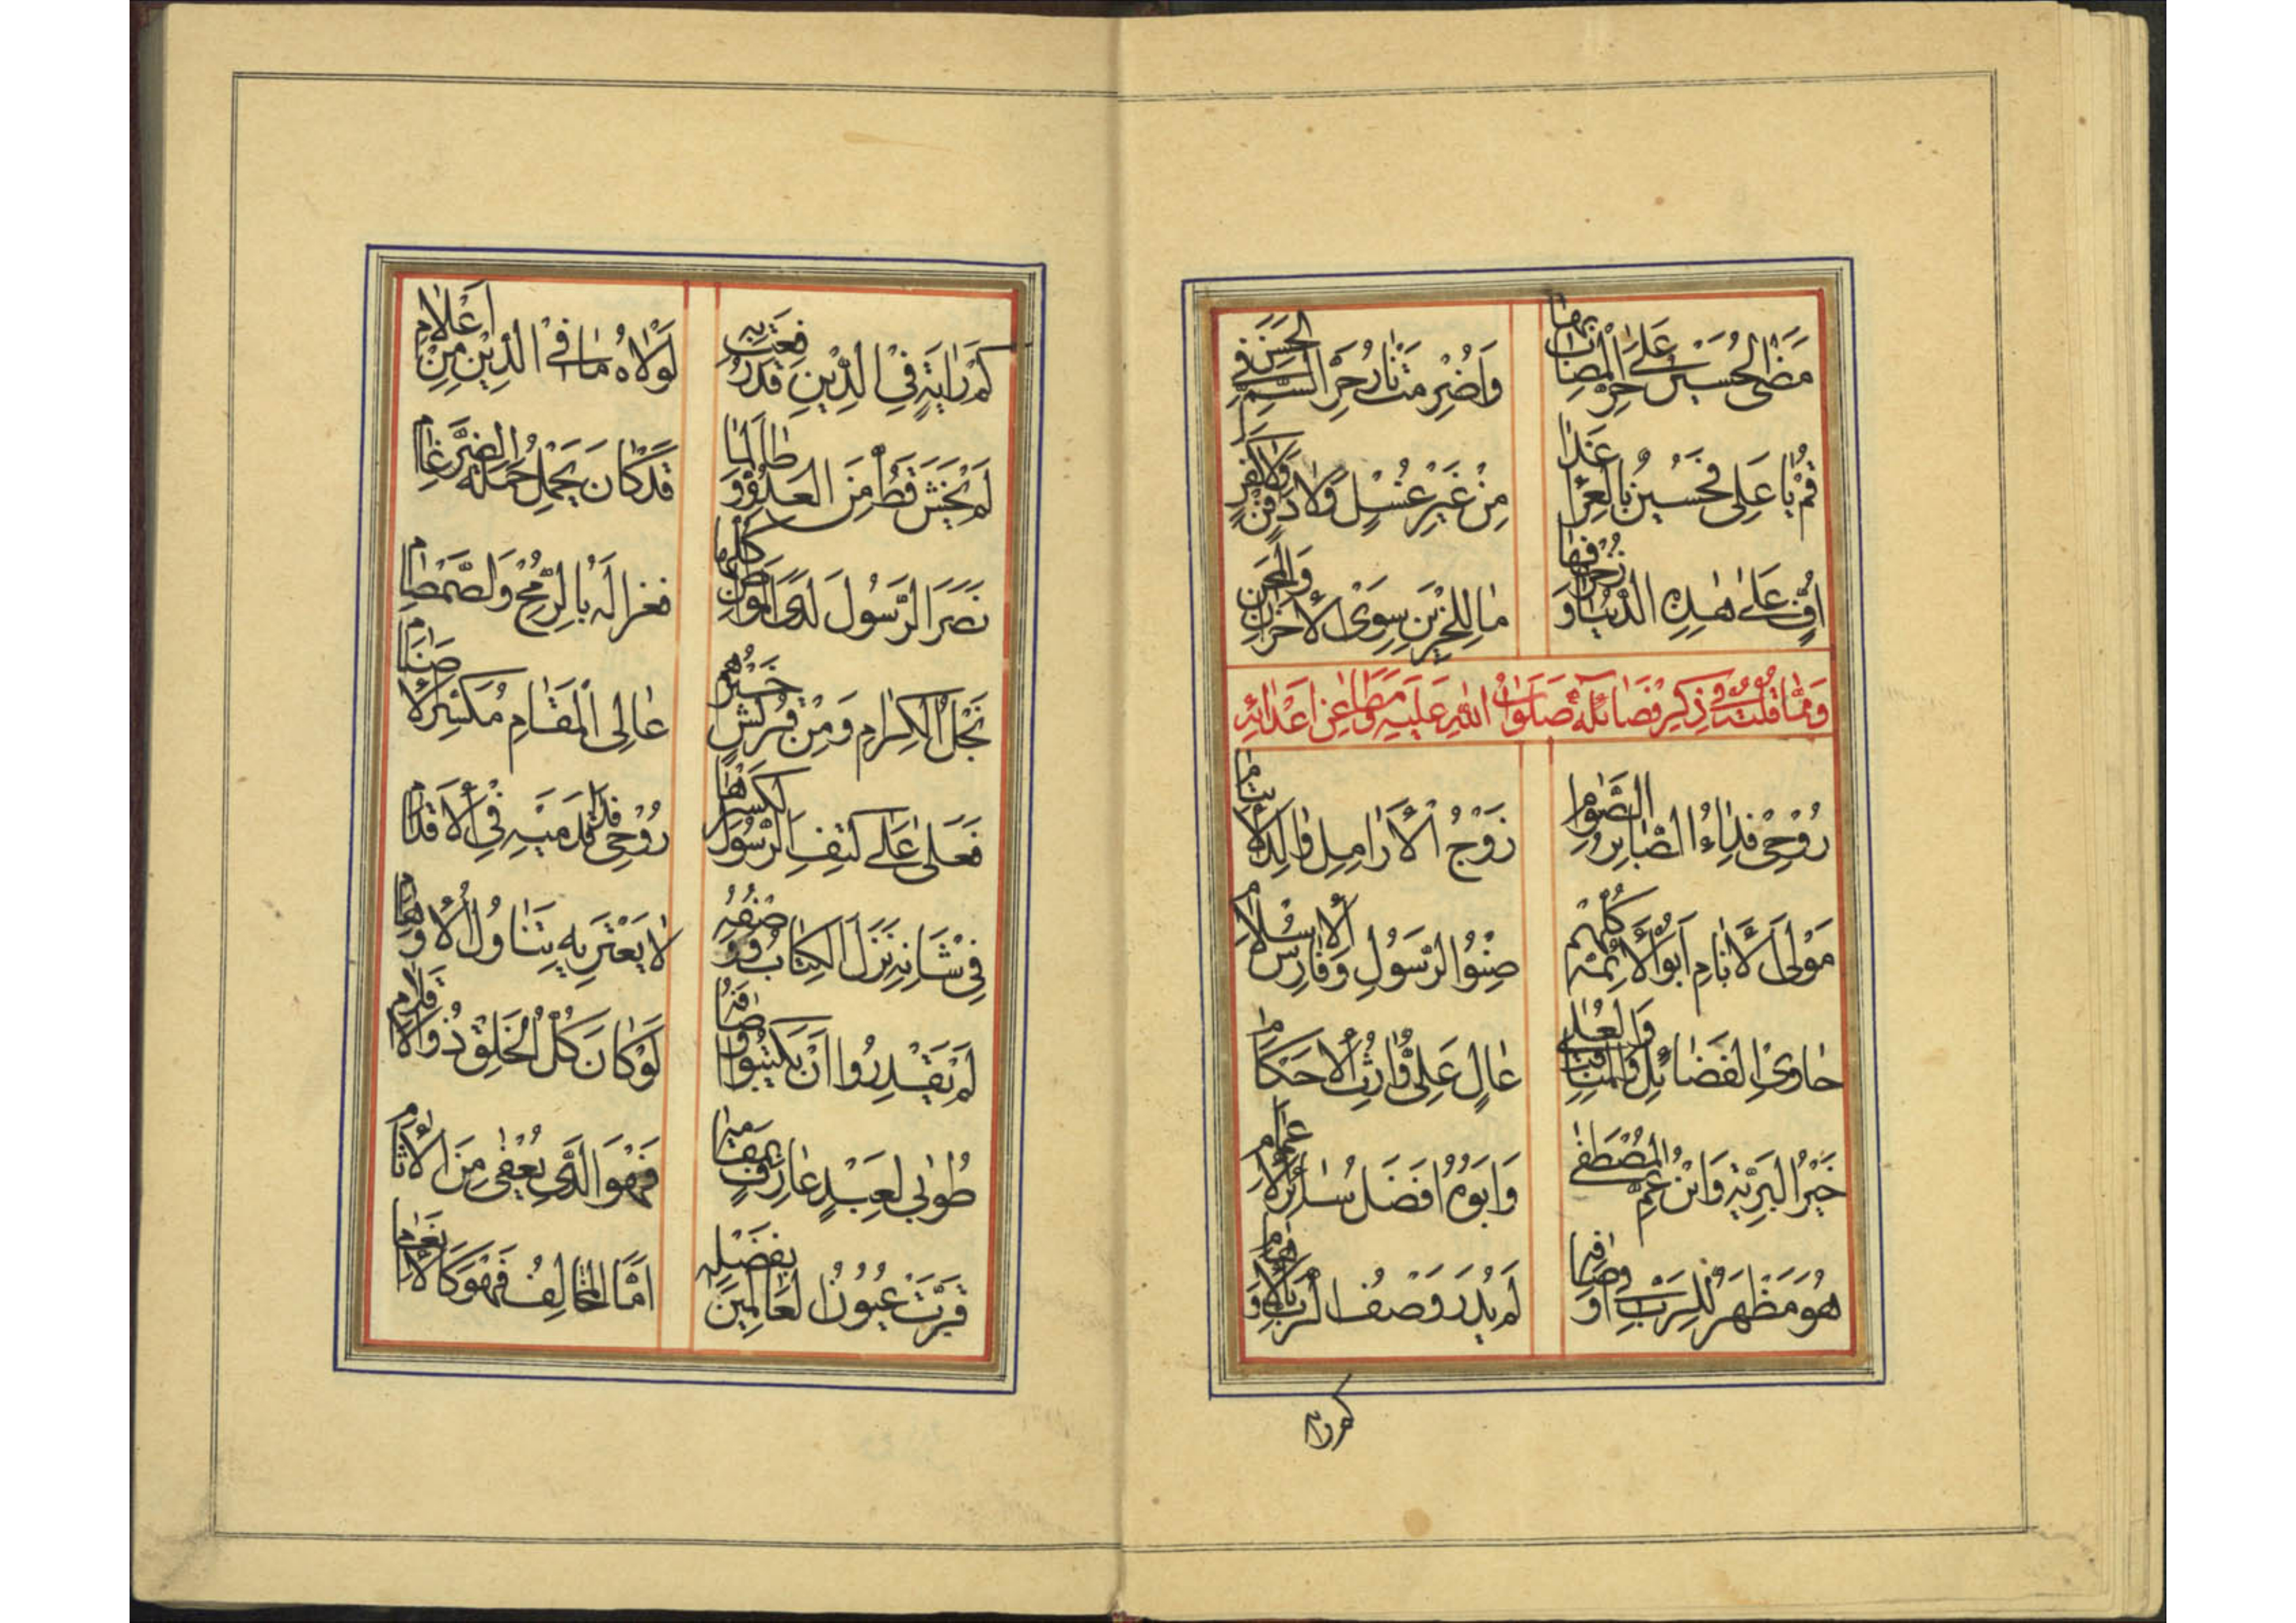 مَضَى الحُسَيْنُ عَلَى حَرِّ المُصَابِ بِهَا
وَاضْرِمَتْ نَارُ حَرِّ السَّمِّ فِي الحَسَنِ
قُمْ يَا عَلِى فَحُسَيْنٌ بِالعَرَا غَدَا
مِنْ غَيْرِ غُسْلٍ وَلَا دَفْنٍ وَلَا كَفَنٍ
اُفٍّ عَلَى هٰذِهِ الدُّنْيَا وَزُخْرُفِهَا
مَا لِلْحَزِيْنِ سِوَى الْاَحْزَانِ وَالْمِحَنِ
وَمِمَّا قُلْتُ فِي ذِكْرِ فَضَائِلِهِ صَلَوَاتُ اللهِ عَلَيْهِ عَنْ اَعْدَائِهِ
رُوْحِى فِدَاءُ الصَّابِرِ الصَّوَّامِ
زَوْجُ الْاَرَامِلِ وَالِدُ الْاَيْتَامِ
مَوْلَى الْاَنَامِ اَبُو الْاَئِمَّةِ كُلِّهِمْ
صِنْوُ الرَّسُولِ وَفَارِسُ الْاِسْلَامِ
حَاوِى الفَضَائِلِ وَالمَنَاقِبِ وَالعُلَى
عَالٍ عَلِىٌّ وَارِثُ الْاَحْكَامِ
خَيْرُ البَرِيَّةِ وَابْنُ عَمِّ المُصْطَفَى
وَاَبُوهُ اَفْضَلُ سَائِرِ الْاَعْمَامِ
هُوَ مَظْهَرٌ لِلرَّبِّ فِي اَوْصَافِهِ
لَمْ يُدْرَ وَصْفُ الرَّبِّ بِالْاَوْهَامِ
كم راية
كَمْ رَايَةٍ فِي الدِّيْنِ قَدْ رُفِعَتْ بِهِ
لَوْلَاهُ مَا فِي الدِّيْنِ مِنْ اَعْلَامِ
لَمْ يَخْشَ قَطُّ مِنَ العَدُوِّ وَطَالَمَا
قَدْ كَانَ يَحْمِلُ حَمْلَةَ الضِّرْغَامِ
نَصَرَ الرَّسُولَ لَدَى المَوَاطِنِ كُلِّهَا
فغزا لَهُ بِالرُّمْحِ وَالصَّمْصَامِ
نَجْلُ الكِرَامِ وَمِنْ قُرَيْشٍ خَيْرُهُمْ
عَالِى الْمَقَامِ مُكَسِّرُ الْاَصْنَامِ
فَعَلَى عَلَى كَتِفِ الرَّسُولِ لِكَسْرِهَا
رُوْحِى فِدَا قَدَمَيْهِ فِي الْاَقْدَامِ
فِي شَانِهِ نَزَلَ الكِتَابُ وَوَصْفُهُ
لَا يَعْتَرِيهِ تَنَاوُلُ الْاَوْهَامِ
لَمْ يَقْدِرُوا اَنْ يَكْتُبُوا اَوْصَافَهُ
لَوْ كَانَ كُلُّ الْخَلْقِ ذُو الْاَقْلَامِ
طُوْبَى لِعَبْدٍ عَارِفٍ بِمَقَامِهِ
فَهُوَ الَّذِى يُعْفَى مِنَ الْاٰثَامِ
قَرَّتْ عُيُوْنُ العَالَمِيْنَ بِفَضْلِهِ
اَمَّا المُخَالِفُ فَهُوَ كَالْاَنْعَامِ